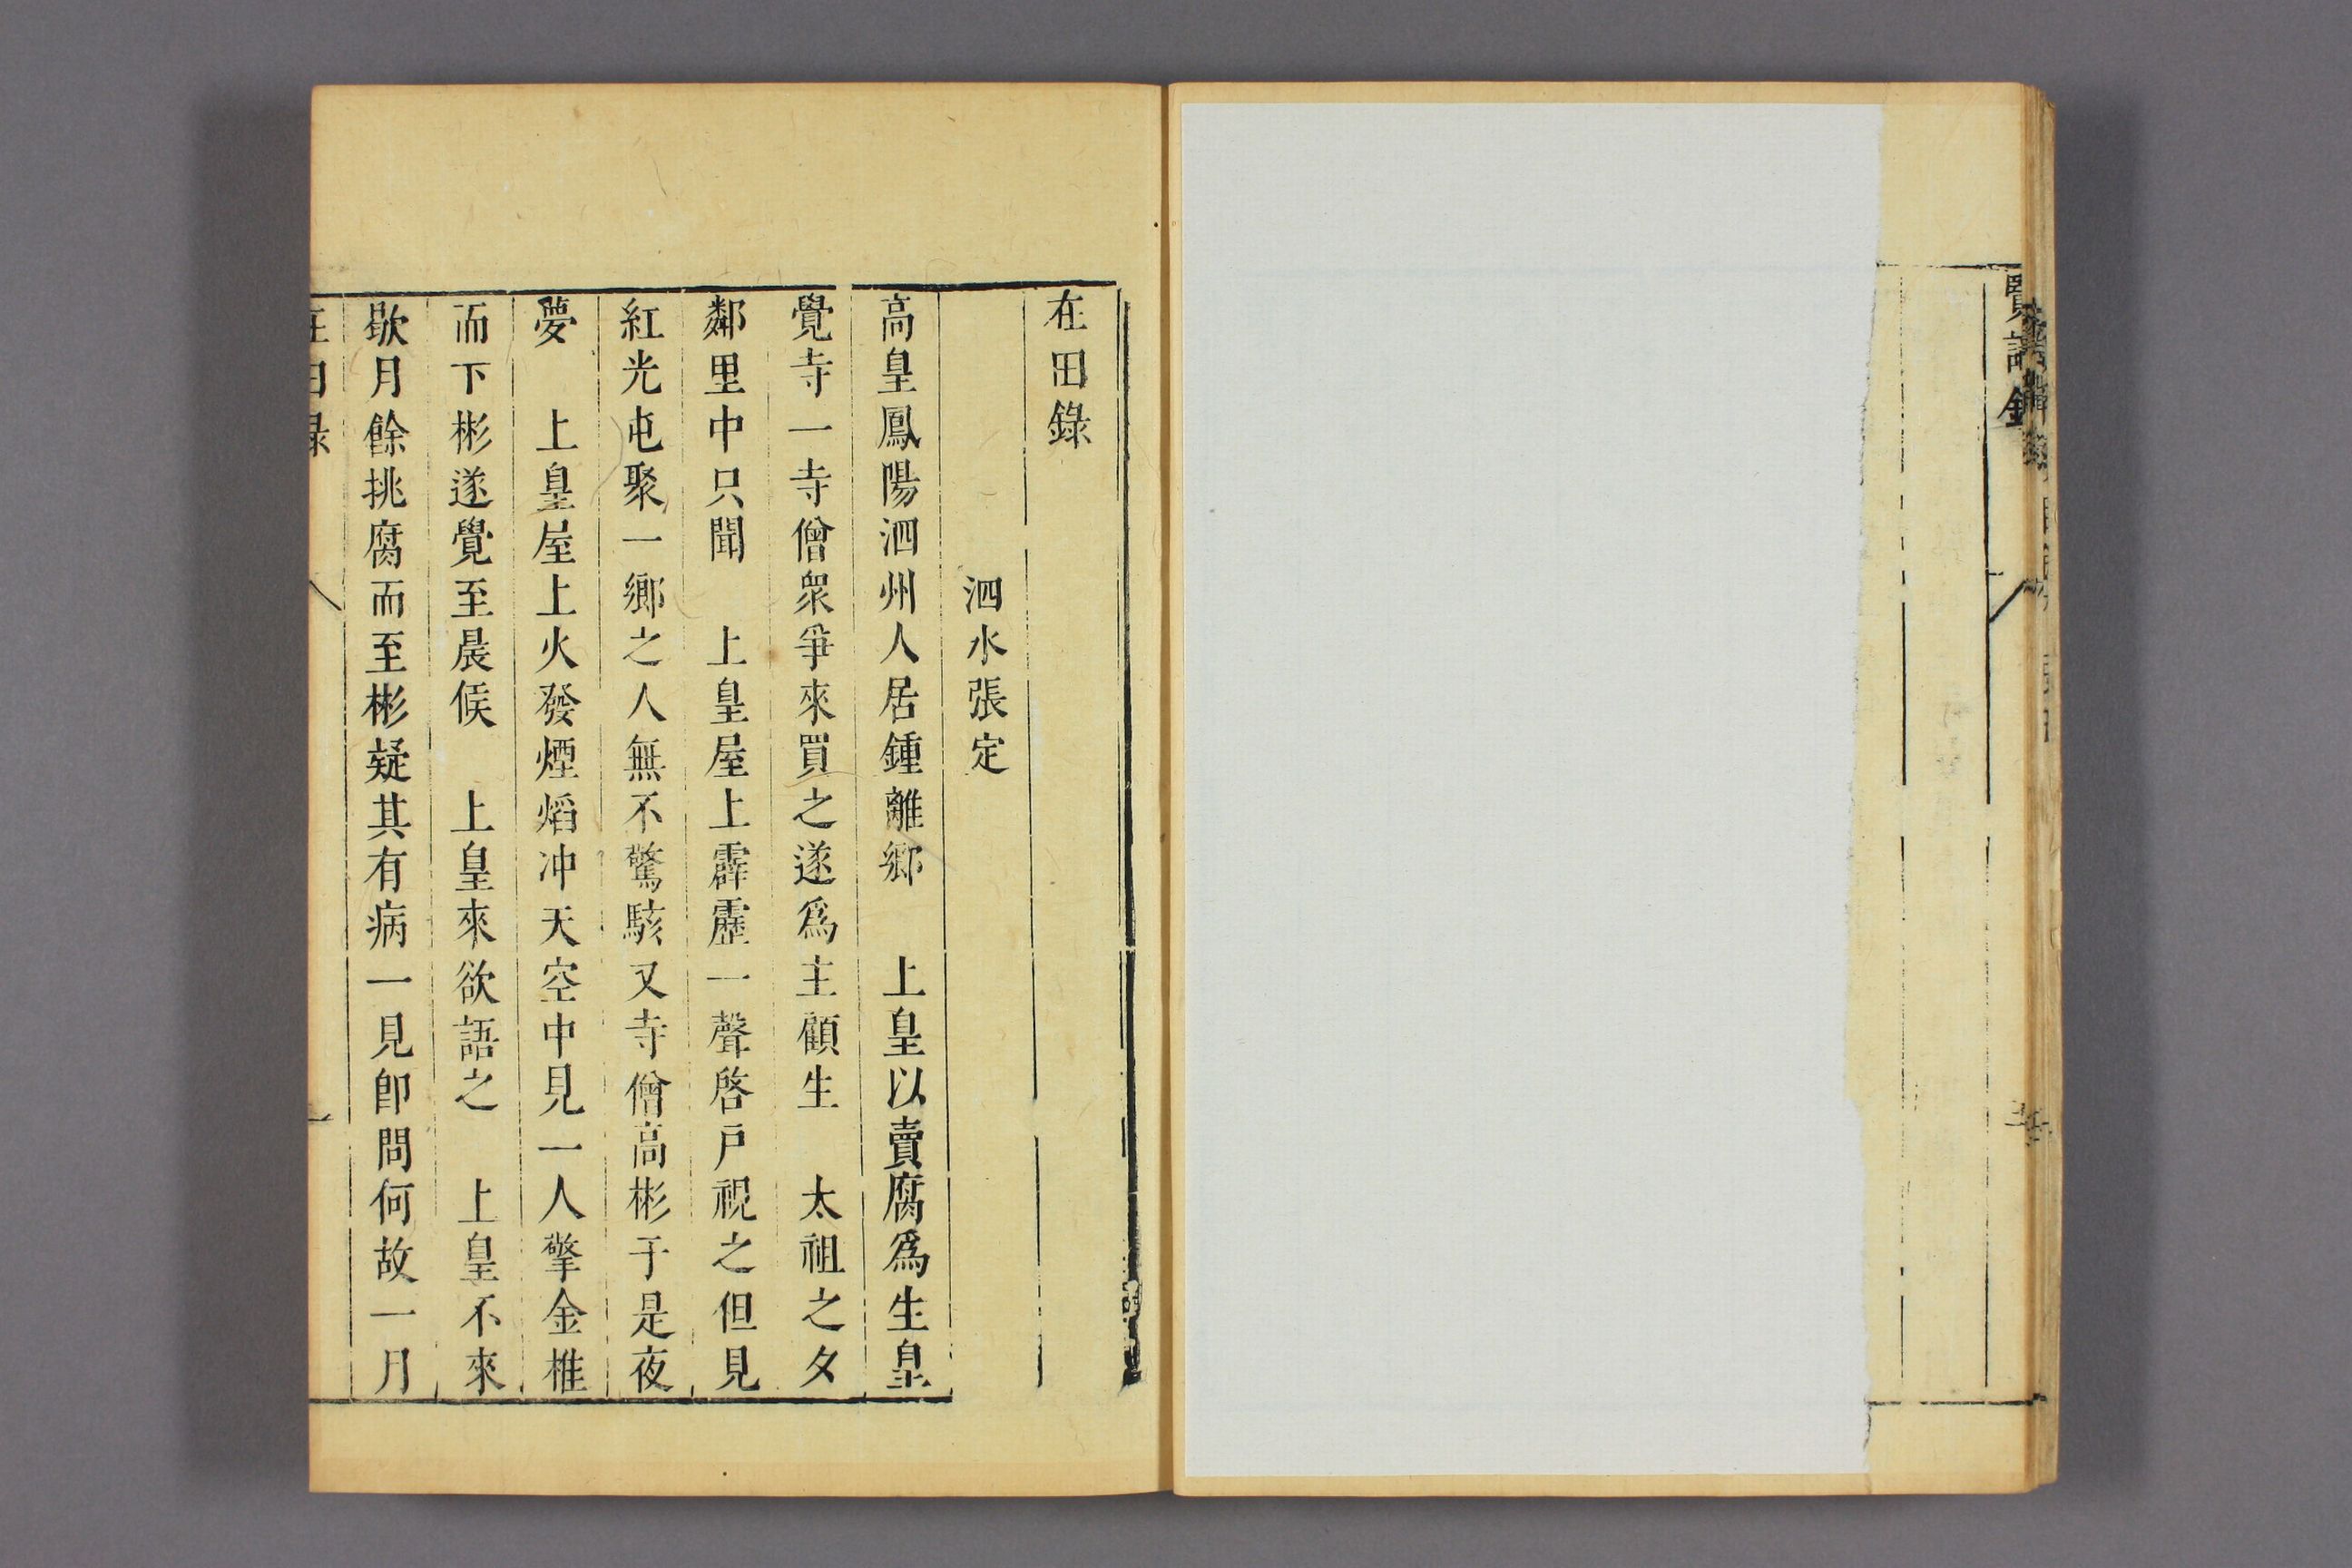 在田錄
泗水張定
高皇鳳陽泗州人居鍾離鄉　上皇以賣腐爲生皇
覺寺一寺僧衆爭來買之遂爲主顧生　太祖之夕
鄰里中只聞　上皇屋上霹靂一聲啓戸視之但見
紅光屯聚一鄉之人無不驚駭又寺僧高彬于是夜
夢　上皇屋上火發煙熖冲天空中見一人擎金椎
而下彬遂覺至晨候　上皇來欲語之　上皇不來
歇月餘挑腐而至彬疑其有病一見卽問何故一月
在田录